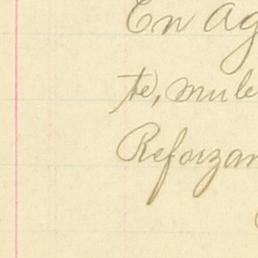 En Ag
te, mule
Reforzan